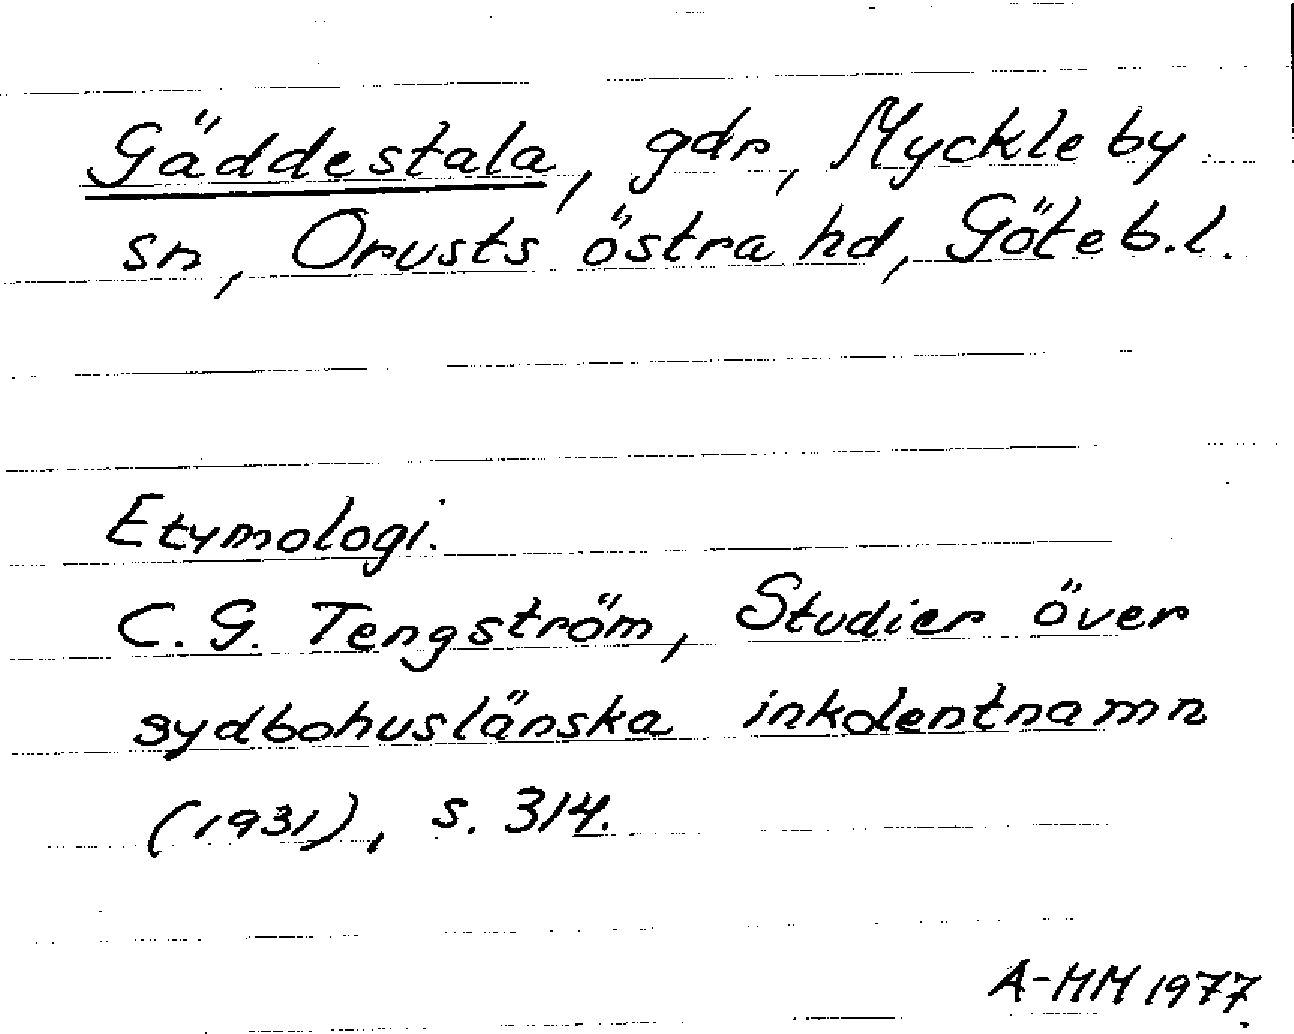 Gäddestala, gdr, Myckleby
sn, Orusts östra hd, Göteb.l.
Etymologi.
C. G. Tengström, Studier över
sydbohuslänska inkolentnamn
(1931), s. 314.
A-MM 1977